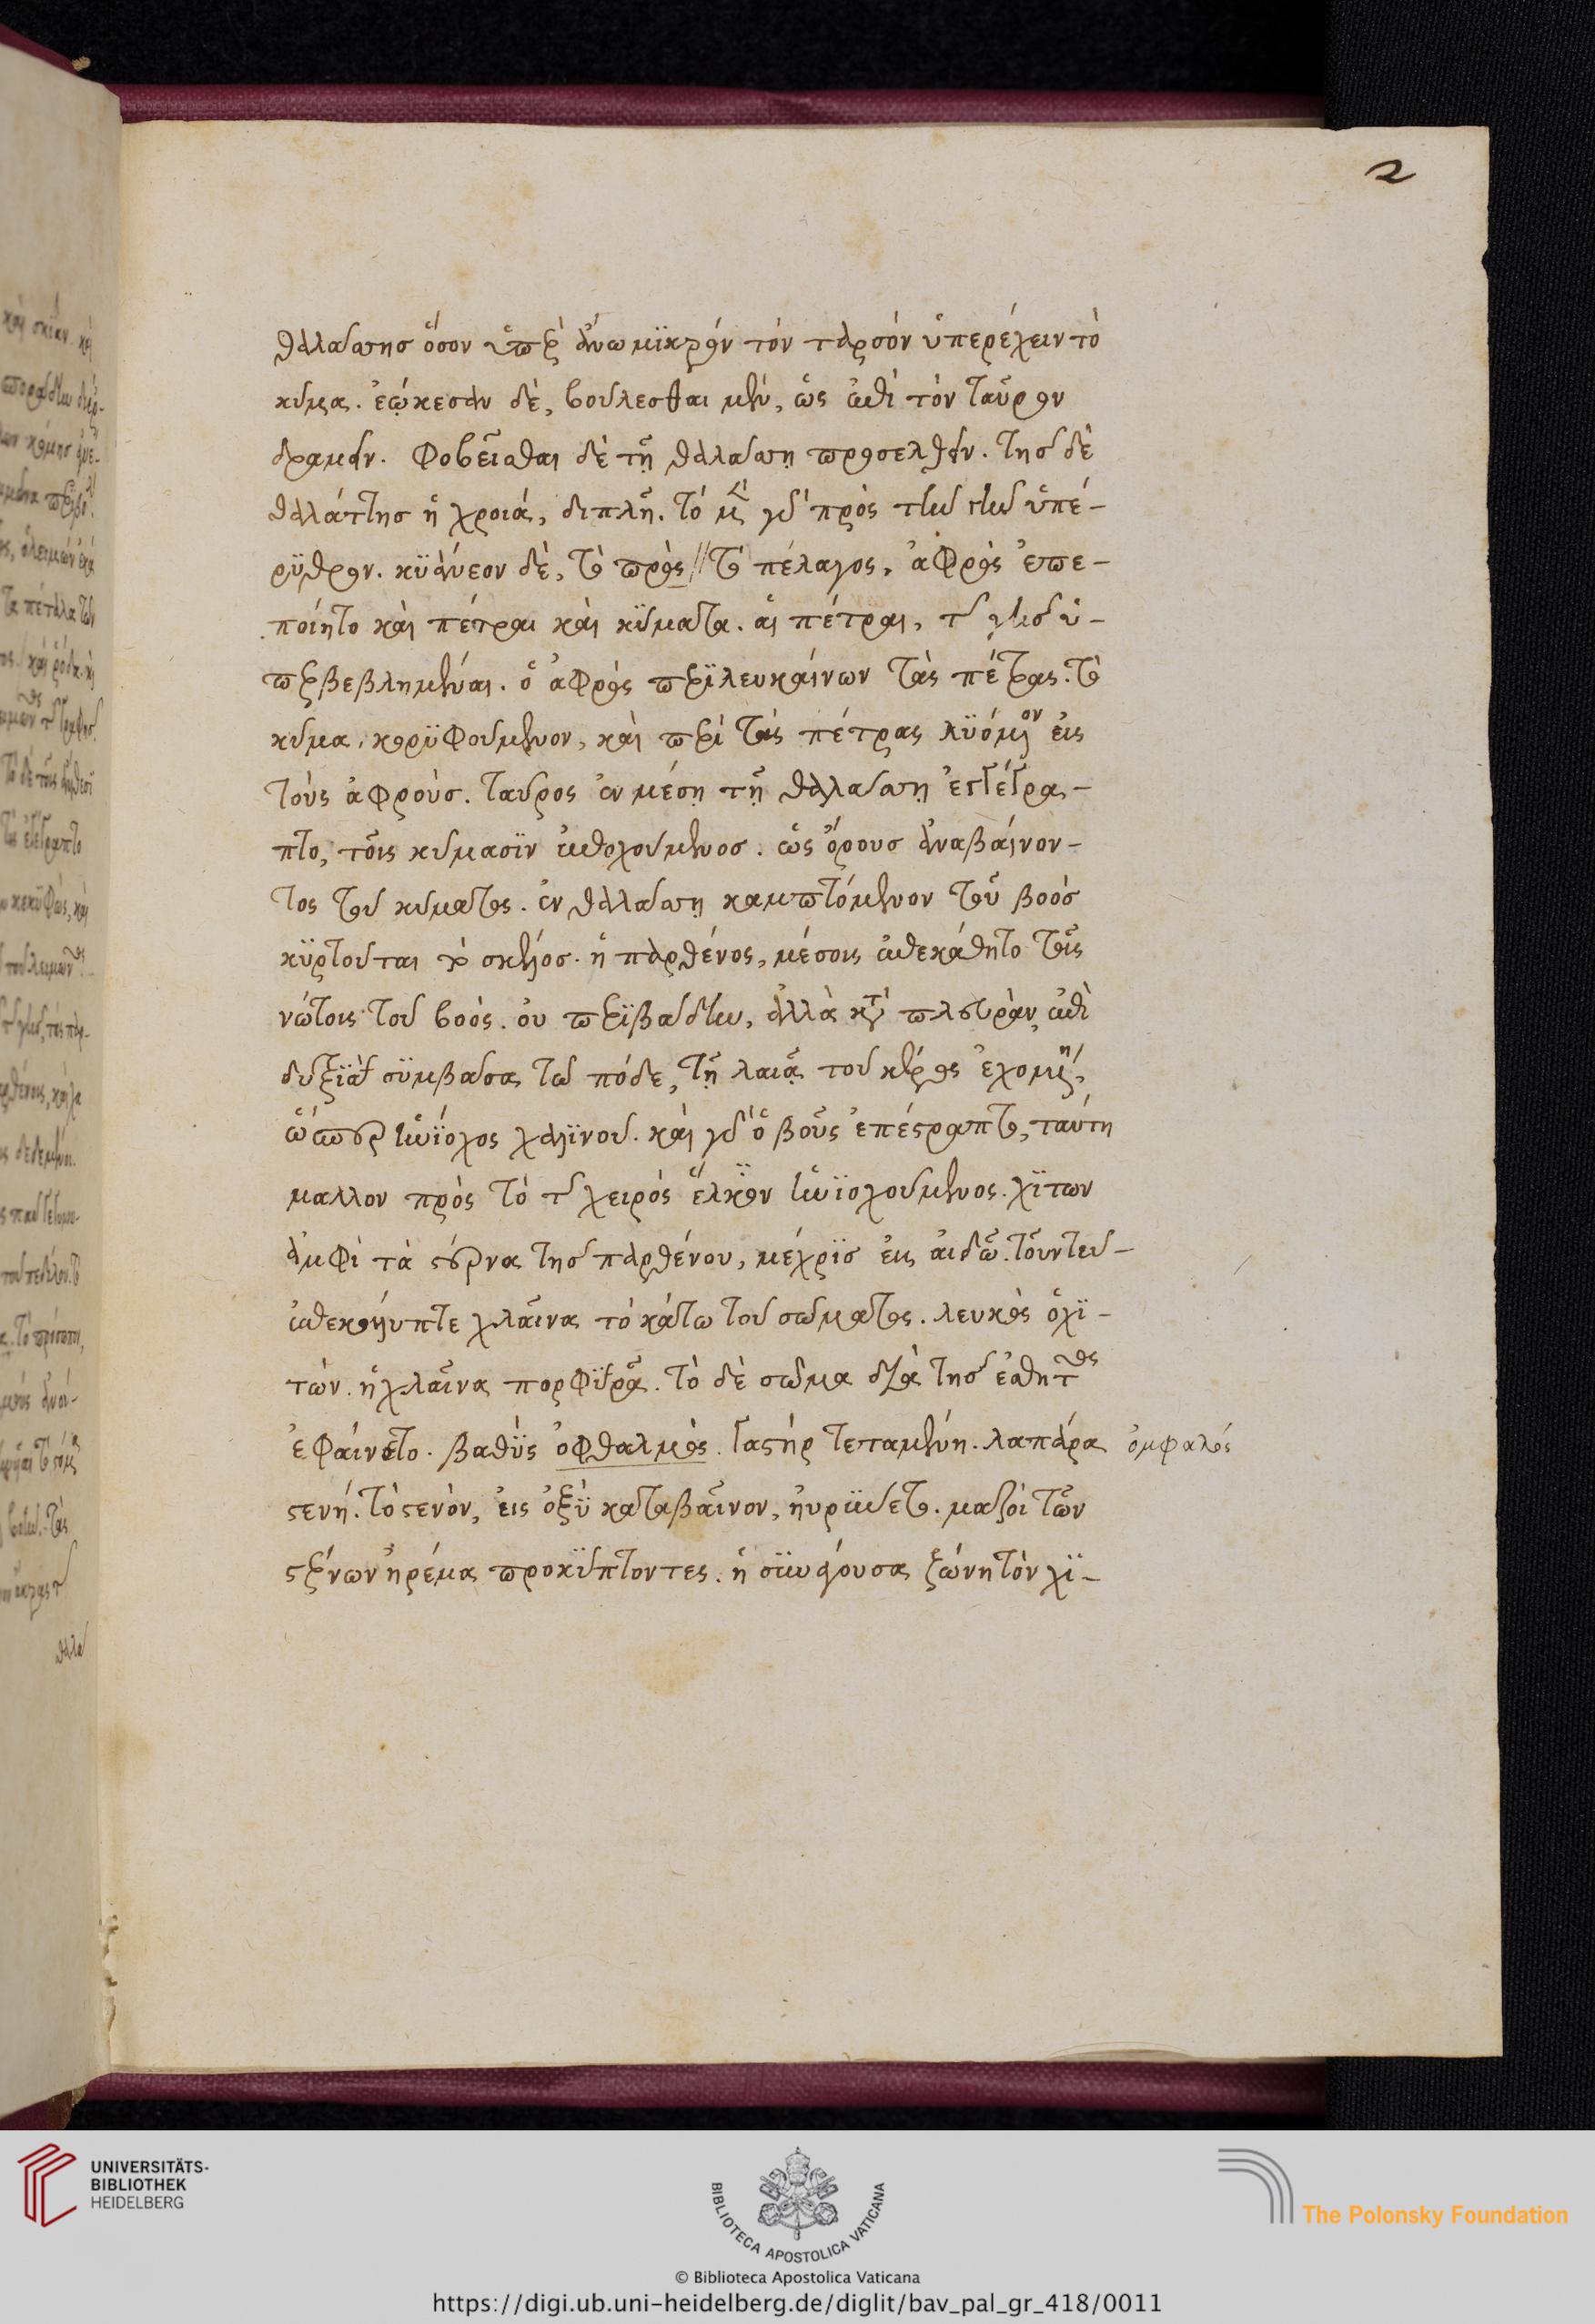 2
θαλάσσης ὅσον ὑπὲρ ἄνω μικρὸν τὸν ταρσὸν ὑπερέχειν τὸ
κῦμα. ἐῴκεσαν δὲ, βούλεσθαι μὲν, ὡς ἐπὶ τὸν ταῦρον
δραμεῖν. φοβεῖσθαι δὲ τῇ θαλάσσῃ προσελθεῖν. τῆς δὲ
θαλάττης ἡ χροιά, διπλῆ. τὸ μὲν γὰρ πρὸς τὴν γῆν ὑπέ-
ρυθρον. κυάνεον δὲ, τὸ πρὸς // τὸ πέλαγος. ἀφρὸς ἐπε-
ποίητο καὶ πέτραι καὶ κύματα. αἱ πέτραι, τῆς γῆς ὑ-
περβεβλημέναι. ὁ ἀφρὸς περιλευκαίνων τὰς πέτρας. τὸ
κῦμα, κορυφούμενον, καὶ περὶ τὰς πέτρας λυόμενον εἰς
τοὺς ἀφρούς. ταῦρος ἐν μέσῃ τῇ θαλάσσῃ ἐγέγρα-
πτο, τοῖς κύμασιν ἐποχούμενος. ὡς ὄρους ἀναβαίνον-
τος τοῦ κύματος. ἐν θαλάσσῃ καμπτόμενον τοῦ βοὸς
κυρτοῦται τὸ σκέλος. ἡ παρθένος, μέσοις ἐπεκάθητο τοῖς
νώτοις τοῦ βοός. οὐ περιβάδην, ἀλλὰ κατὰ πλευρὰν, ἐπὶ
δεξιὰ συμβᾶσα τὼ πόδε, τῇ λαιᾷ τοῦ κέρως ἐχομένη,
ὥσπερ ἡνίοχος χαλινοῦ. καὶ γὰρ ὁ βοῦς ἐπέστραπτο, ταύτῃ
μᾶλλον πρὸς τὸ τῆς χειρὸς ἕλκον ἡνιοχούμενος. χιτὼν
ἀμφὶ τὰ στέρνα τῆς παρθένου, μέχρις εἰς αἰδῶ. τοὐντεῦ-
ἐπεκάλυπτε χλαῖνα τὸ κάτω τοῦ σώματος. λευκὸς ὁ χι-
τών. ἡ χλαῖνα πορφυρᾶ. τὸ δὲ σῶμα διὰ τῆς ἐσθῆτος
ἐφαίνετο. βαθὺς ὀφθαλμὸς. γαστὴρ τεταμένη. λαπάρα ὀμφαλός
στενή. τὸ στενὸν, εἰς ὀξὺ καταβαῖνον, ηὐρύνετο. μαζοὶ τῶν
στέρνων ἠρέμα προκύπτοντες. ἡ συνάγουσα ζώνη τὸν χι-
UNIVERSITÄTS-
BIBLIOTHEK
HEIDELBERG
BIBLIOTECA APOSTOLICA VATICANA
The Polonsky Foundation
© Biblioteca Apostolica Vaticana
https://digi.ub.uni-heidelberg.de/diglit/bav_pal_gr_418/0011